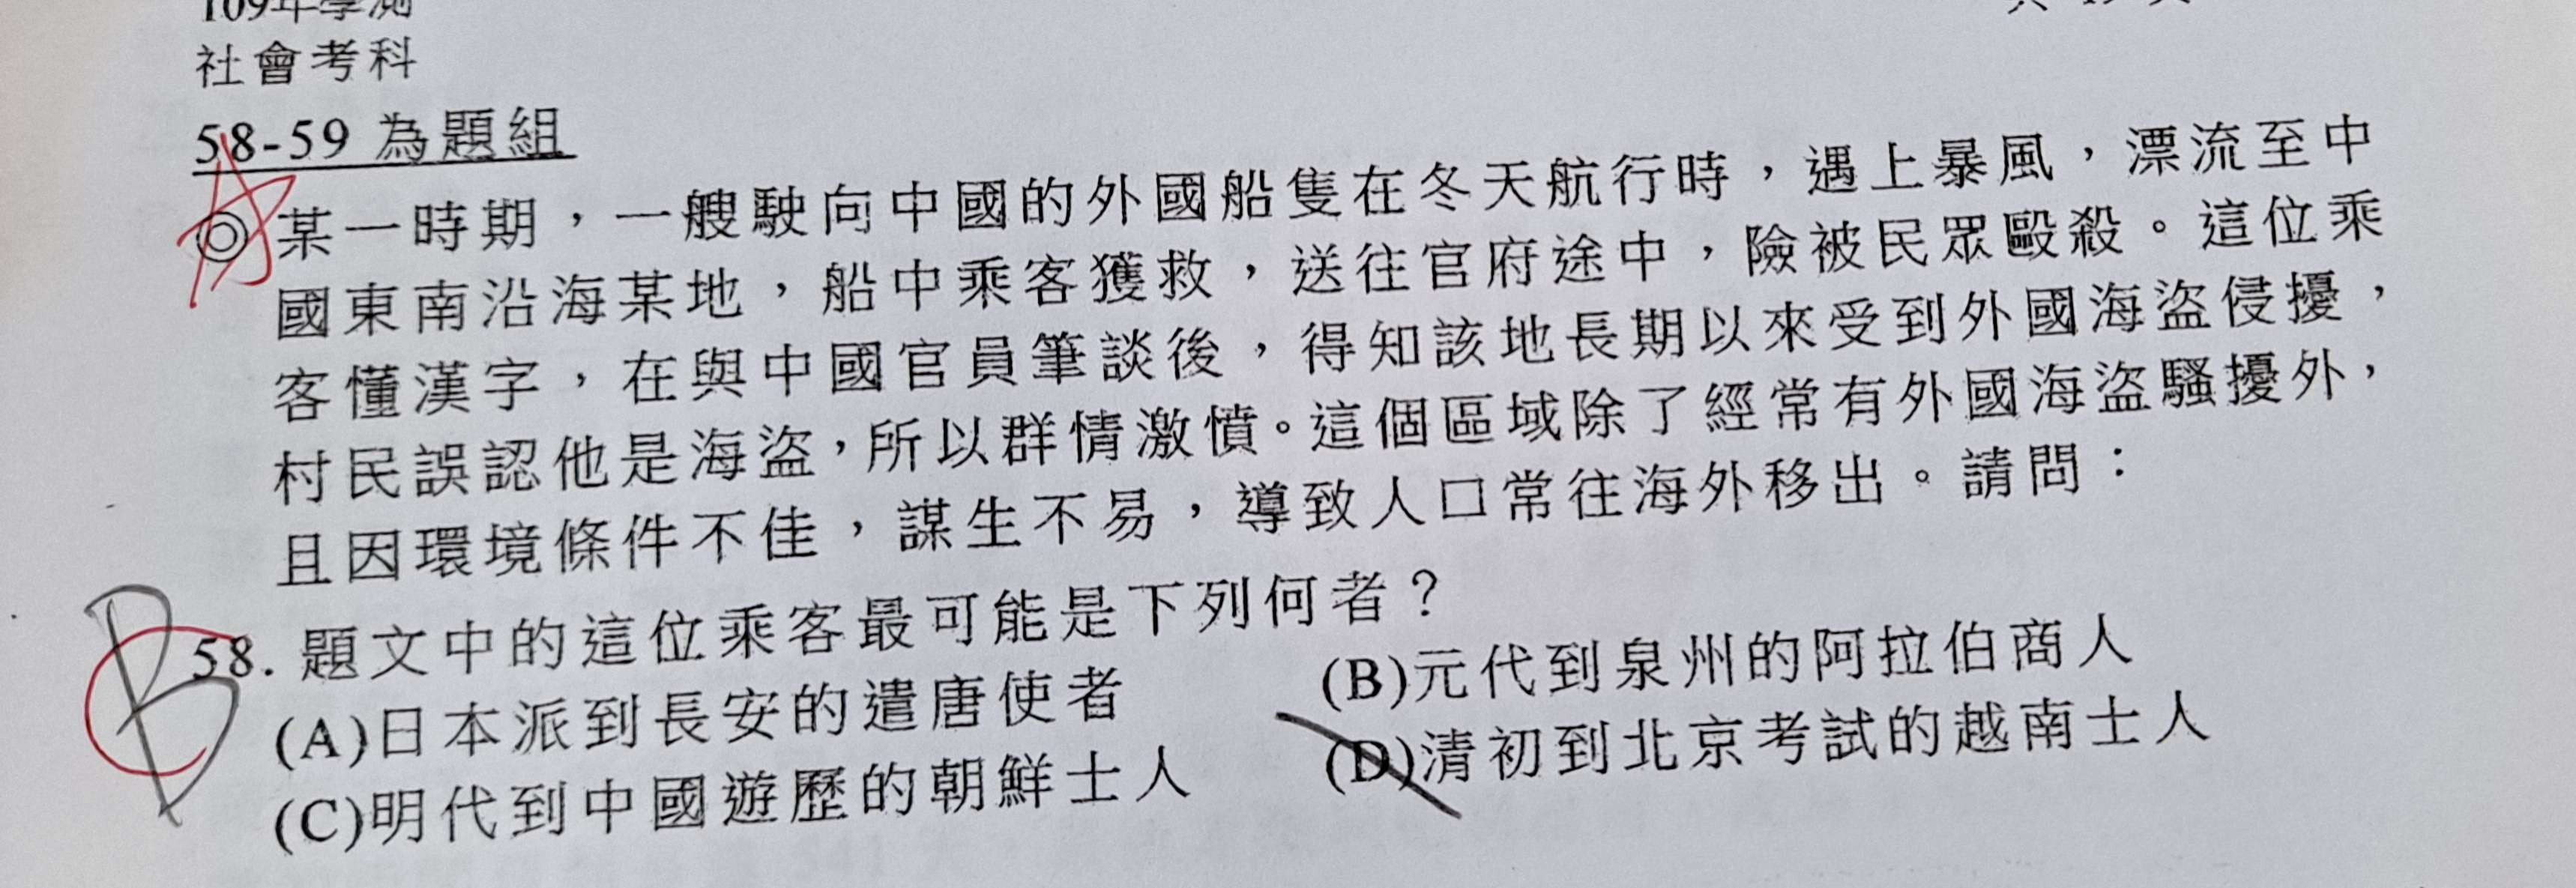 109年學測
社會考科
58-59 為題組
◎某一時期，一艘駛向中國的外國船隻在冬天航行時，遇上暴風，漂流至中
國東南沿海某地，船中乘客獲救，送往官府途中，險被民眾毆殺。這位乘
客懂漢字，在與中國官員筆談後，得知該地長期以來受到外國海盜侵擾，
村民誤認他是海盜，所以群情激憤。這個區域除了經常有外國海盜騷擾外，
且因環境條件不佳，謀生不易，導致人口常往海外移出。請問：
B
58. 題文中的這位乘客最可能是下列何者？
(A)日本派到長安的遣唐使者 (B)元代到泉州的阿拉伯商人
(C)明代到中國遊歷的朝鮮士人 (D)清初到北京考試的越南士人